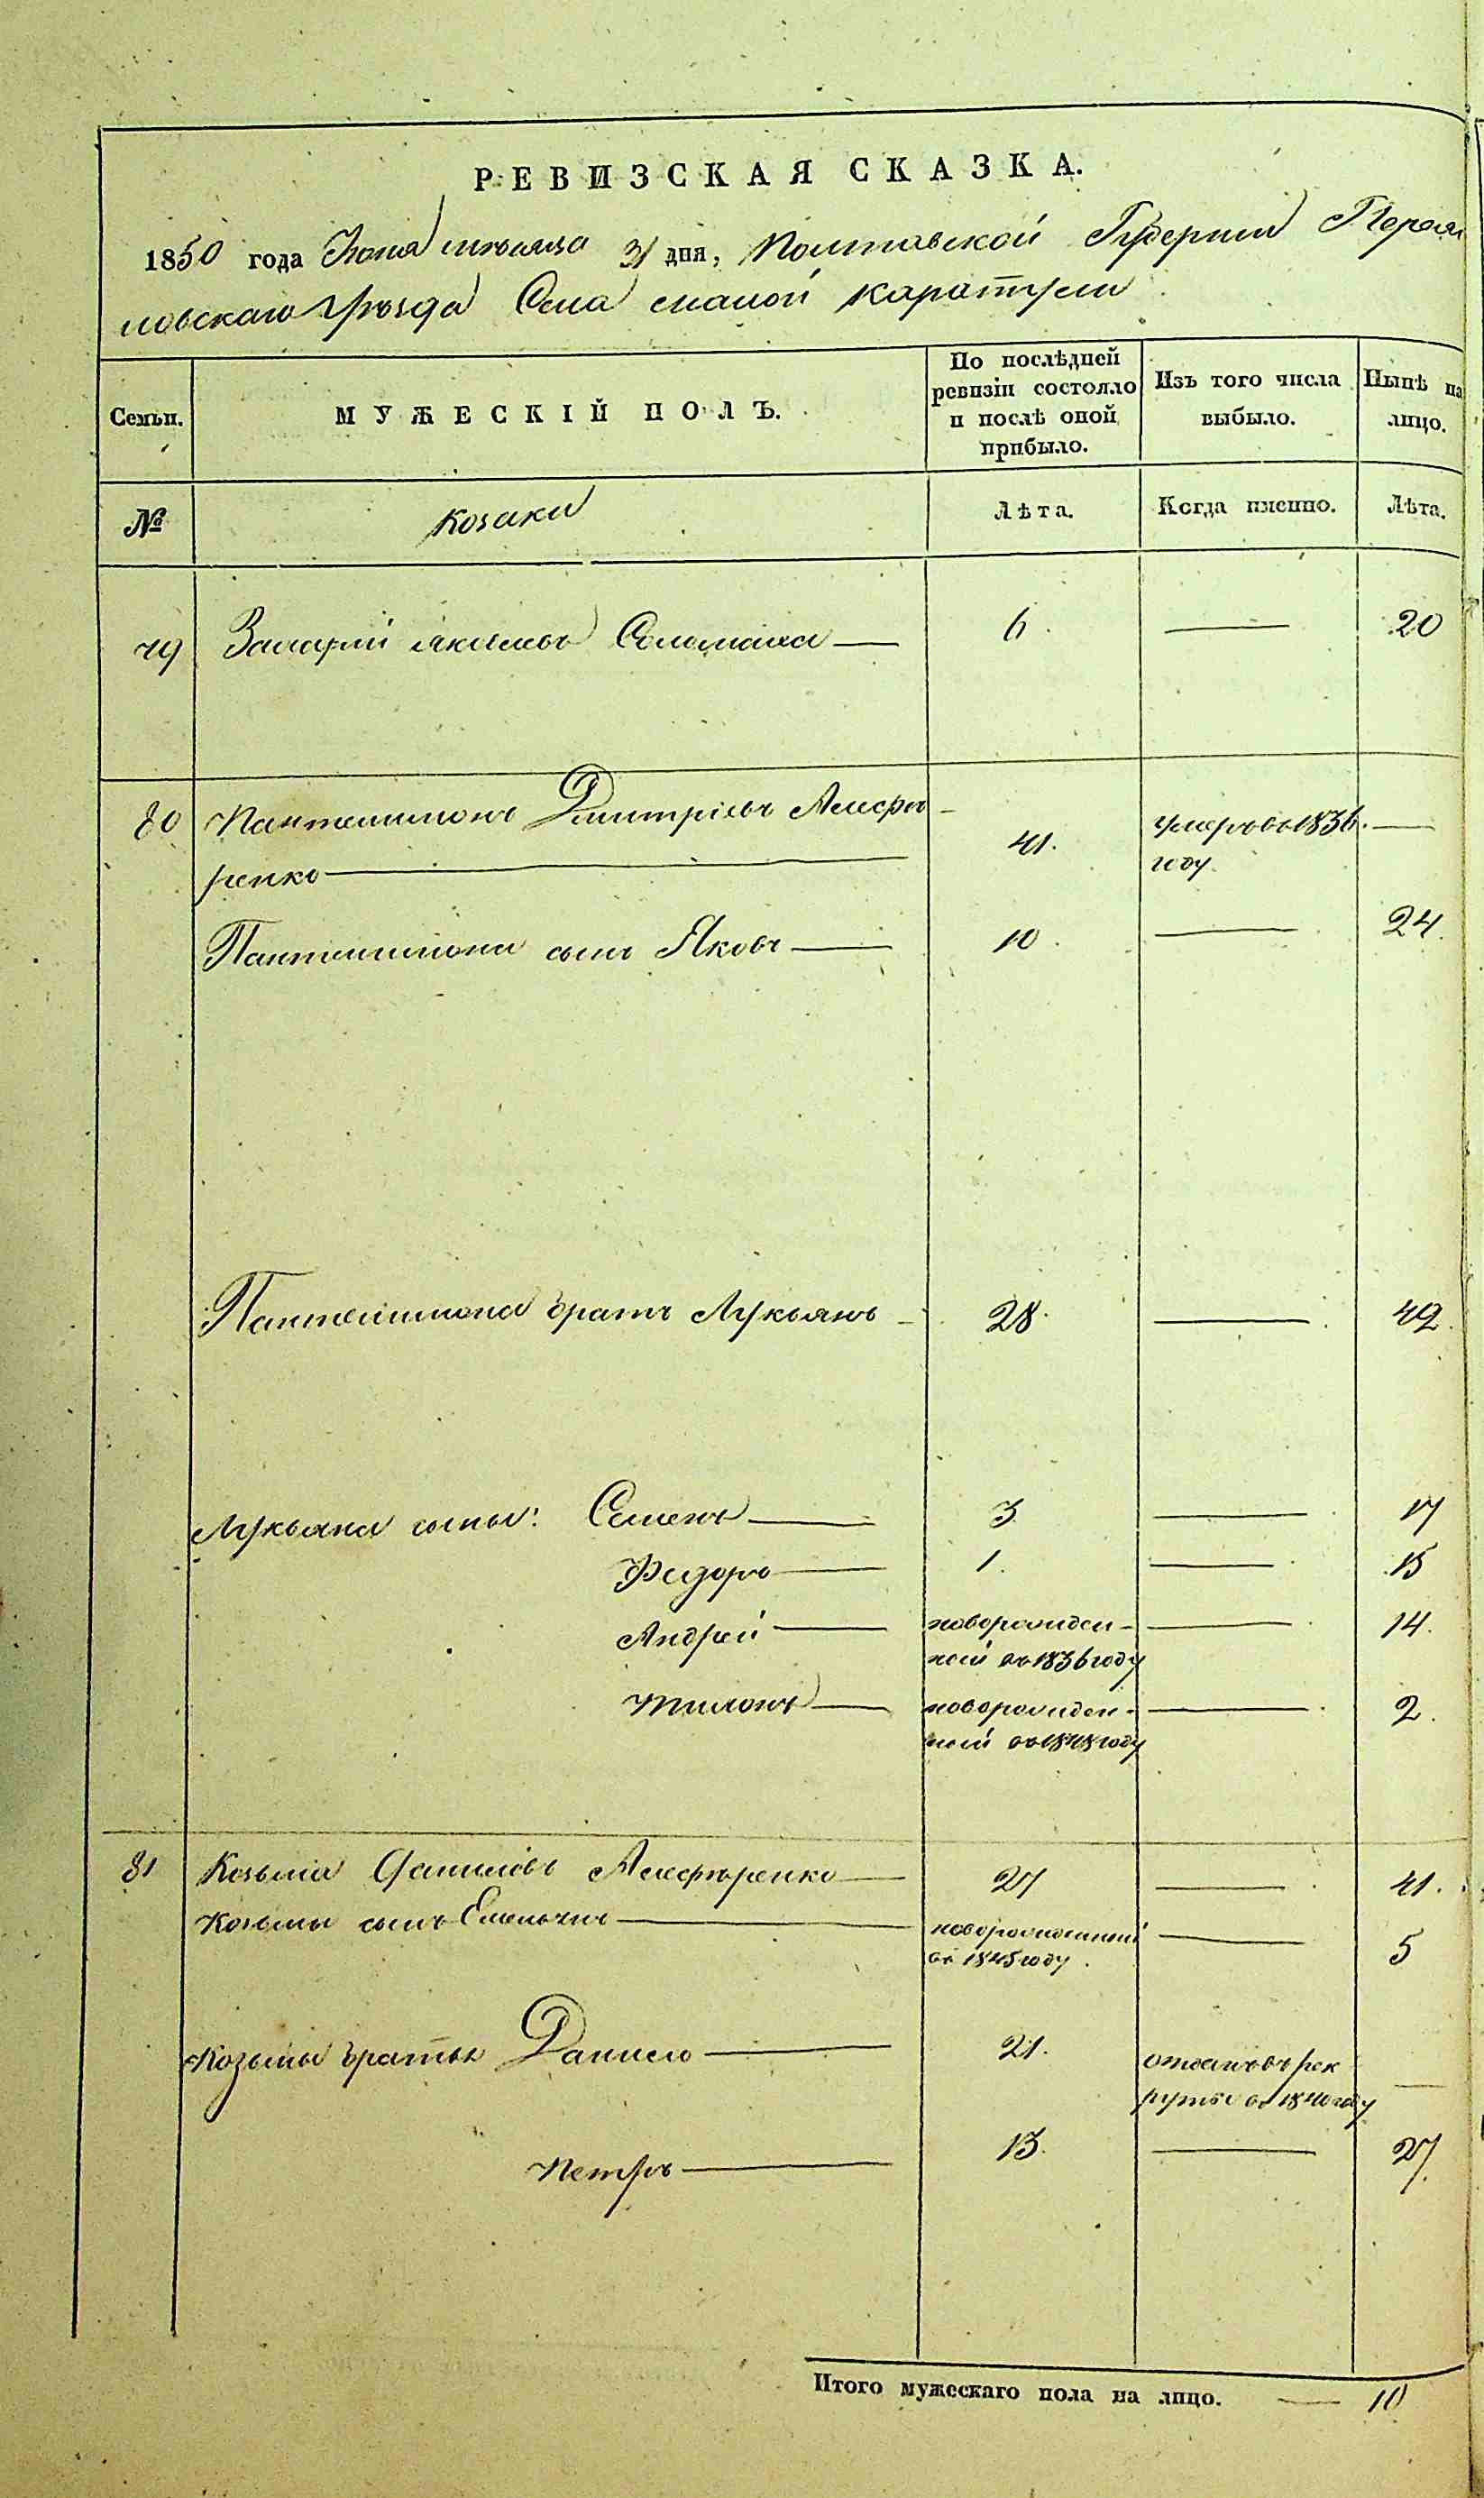 РЕВИЗСКАЯ СКАЗКА.
1850 года Іюля мѣсяца 31 дня, Полтавской Губерніи Перея
новскаго Уѣзда Села малой каратули
Семьи.
МУЖЕСКІЙ ПОЛЪ.
По послѣдней ревизіи состояло и послѣ оной прибыло.
Изъ того числа выбыло.
Нынѣ на лицо.
№
козаки
Лѣта.
Когда именно.
Лѣта.
79 Захарій якимовъ 6. — 20
80 Пантелимонъ Дмитріевъ Алефи
ренко — 41. умеръ въ 1836. году. —
Пантелимона сынъ Яковъ — 10. — 24.
Пантелимона братъ Лукьянъ 28. — 42.
Лукьяна сыны: Семенъ — 3 — 17
Федоръ — 1. — 15
Андрей — новорожден-
ный въ 1836 году — 14.
Тимонъ — новорожден-
ный въ 1848 году — 2.
81 Козьма Даниловъ Алефиренко — 27 — 41.
Козьмы сынъ Емельянъ — новорожденный
въ 1845 году. — 5
Козьмы братья Данило — 21. отданъ въ рек
руты въ 1840 году —
Петръ — 13. — 27.
Итого мужескаго пола на лицо. — 10